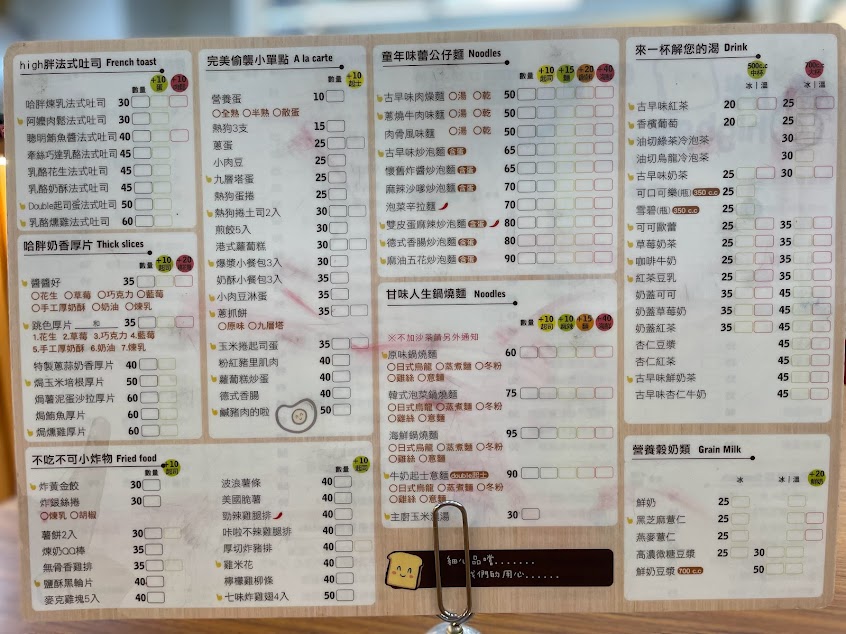 high胖法式吐司 French toast
數量 +10 蛋 +10
哈胖煉乳法式吐司 30
阿嬤肉鬆法式吐司 30
聰明鮪魚醬法式吐司 40
牽絲巧達乳酪法式吐司 45
乳酪花生法式吐司 45
乳酪奶酥法式吐司 45
Double起司蛋法式吐司 50
乳酪燻雞法式吐司 60
哈胖奶香厚片 Thick slices
數量 +10 起司 +20
醬醬好 35
花生 草莓 巧克力 藍莓
手工厚奶酥 奶油 煉乳
跳色厚片 和 35
1.花生 2.草莓 3.巧克力 4.藍莓
5.手工厚奶酥 6.奶油 7.煉乳
特製蔥蒜奶香厚片 40
焗玉米培根厚片 50
焗薯泥蛋沙拉厚片 60
焗鮪魚厚片 60
焗燻雞厚片 60
不吃不可小炸物 Fried food
數量 +10 起司
炸黃金餃 30
炸銀絲捲 30
煉乳 胡椒
薯餅2入 30
煉奶QQ棒 35
無骨香雞排 35
鹽酥黑輪片 40
麥克雞塊5入 40
數量 +10 起司
波浪薯條 40
美國脆薯 40
勁辣雞腿排 40
咔啦不辣雞腿排 40
厚切炸豬排 40
雞米花 40
檸檬雞柳條 40
七味炸雞翅4入 50
完美偷襲小單點 A la carte
數量 +10 起士
營養蛋 10
全熟 半熟 散蛋
熱狗3支 15
蔥蛋 25
小肉豆 25
九層塔蛋 25
熱狗蛋捲 25
熱狗捲土司2入 30
煎餃5入 30
港式蘿蔔糕 30
爆漿小餐包3入 30
奶酥小餐包3入 30
小肉豆淋蛋 35
蔥抓餅 30
原味 九層塔
玉米捲起司蛋 35
粉紅豬里肌肉 40
蘿蔔糕炒蛋 40
德式香腸 40
鹹豬肉的啦 50
童年味蕾公仔麵 Noodles
數量 +10 起司 +15 麵 +20 +40
古早味肉燥麵 湯 乾 50
蔥燒牛肉味麵 湯 乾 50
肉骨風味麵 湯 乾 50
古早味炒泡麵 含蛋 65
懷舊炸醬炒泡麵 含蛋 65
麻辣沙嗲炒泡麵 含蛋 70
泡菜辛拉麵 70
雙皮蛋麻辣炒泡麵 含蛋 80
德式香腸炒泡麵 含蛋 80
麻油五花炒泡麵 含蛋 90
甘味人生鍋燒麵 Noodles
數量 +10 起司 +10 +15 +40
※不加沙茶請另外通知
原味鍋燒麵 60
日式烏龍 蒸煮麵 冬粉
雞絲 意麵
韓式泡菜鍋燒麵 75
日式烏龍 蒸煮麵 冬粉
雞絲 意麵
海鮮鍋燒麵 95
日式烏龍 蒸煮麵 冬粉
雞絲 意麵
牛奶起士意麵 double起士 90
日式烏龍 蒸煮麵 冬粉
雞絲 意麵
主廚玉米濃湯 30
細心品嚐.......
我們的用心......
來一杯解您的渴 Drink
500c.c 中杯 700c.c 大杯
冰 溫 冰 溫
古早味紅茶 20 25
香檳葡萄 20 25
油切綠茶冷泡茶 30
油切烏龍冷泡茶 30
古早味奶茶 25 30
可口可樂(瓶) 350 c.c 25
雪碧(瓶) 350 c.c 25
可可歐蕾 25 35
草莓奶茶 25 35
咖啡牛奶 25 35
紅茶豆乳 25 35
奶蓋可可 35 45
奶蓋草莓奶 35 45
奶蓋紅茶 35 45
杏仁豆漿 45
杏仁紅茶 45
古早味鮮奶茶 45
古早味杏仁牛奶 45
營養穀奶類 Grain Milk
冰 冰 溫 +20 鮮奶
鮮奶 25
黑芝麻薏仁 25
燕麥薏仁 25
高濃微糖豆漿 25 30
鮮奶豆漿 700 c.c 50